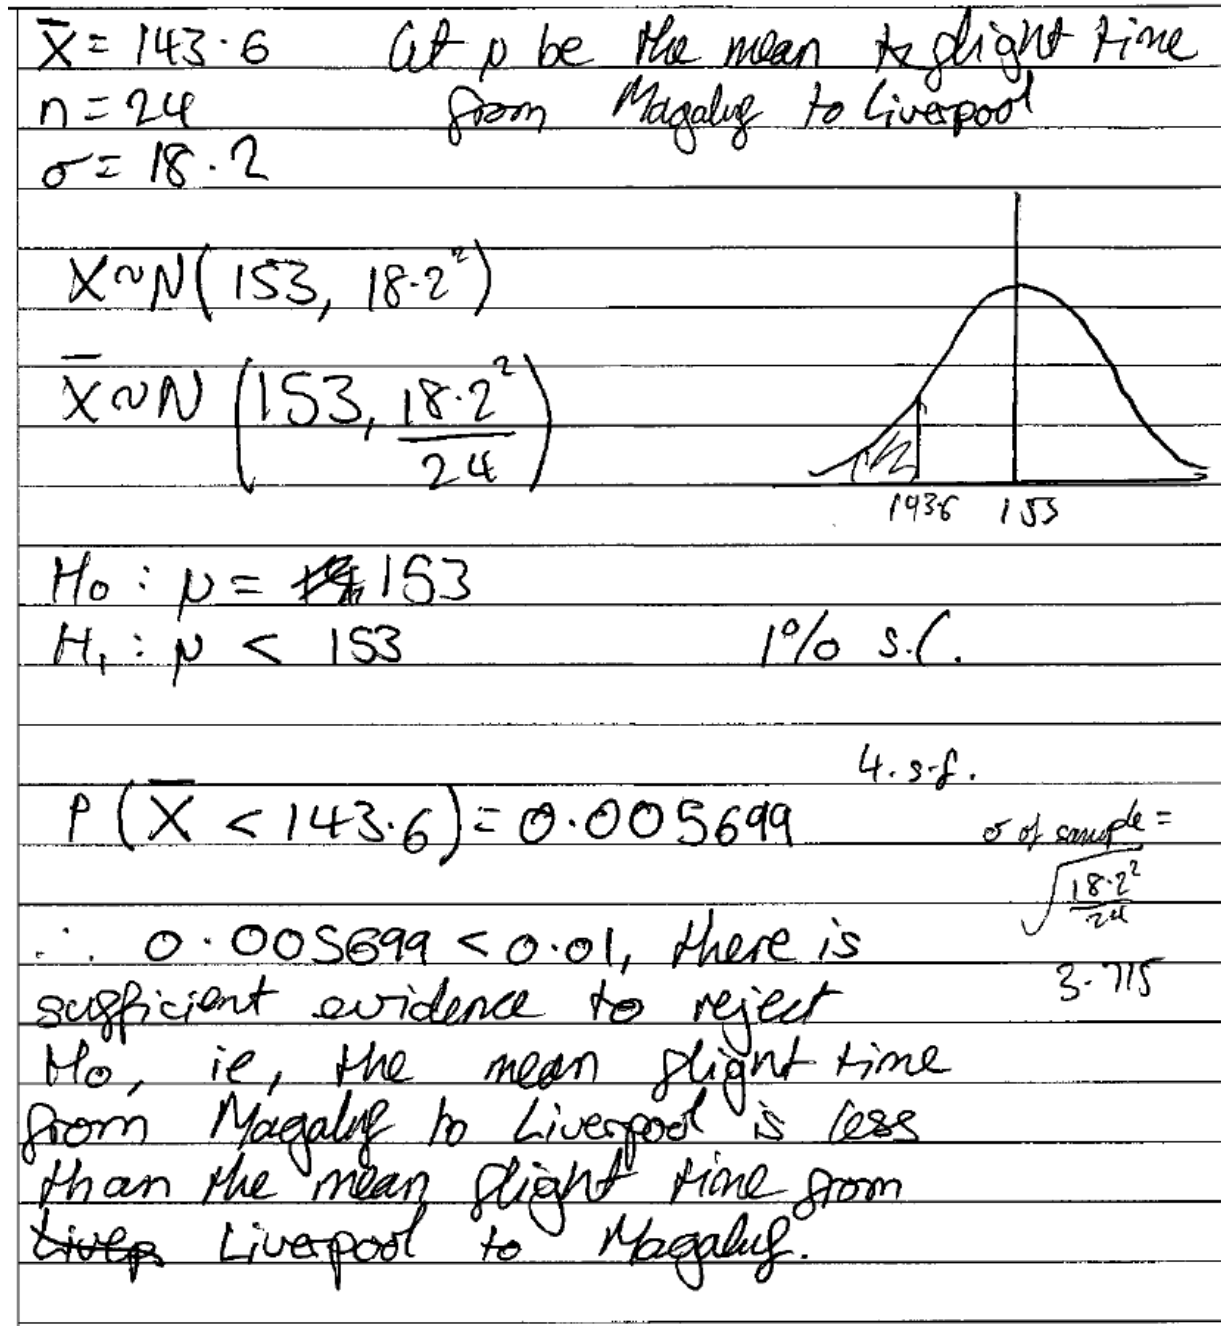 x̄ = 143.6 Let μ be the mean flight time
n = 24 from Magaluf to Liverpool
σ = 18.2
X~N(153, 18.2²)
X̄~N(153, 18.2²/24)
143.6 153
H₀ : μ = 153
H₁ : μ < 153 1% s.l.
4.s.f.
P(X̄ < 143.6) = 0.005699
σ of sample =
√(18.2²/24)
∴ 0.005699 < 0.01, there is
3.715
sufficient evidence to reject
H₀, ie, the mean flight time
from Magaluf to Liverpool is less
than the mean flight time from
Liverpool to Magaluf.